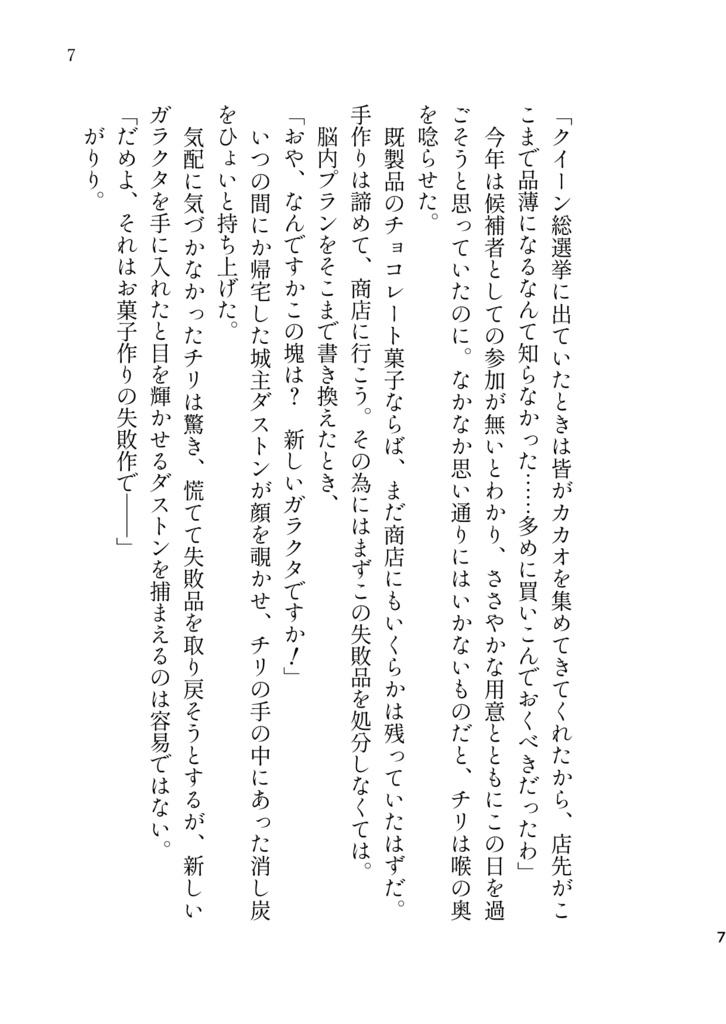 7
「クイーン総選挙に出ていたときは皆がカカオを集めてきてくれたから、店先がこ
こまで品薄になるなんて知らなかった……多めに買いこんでおくべきだったわ」
今年は候補者としての参加が無いとわかり、ささやかな用意とともにこの日を過
ごそうと思っていたのに。なかなか思い通りにはいかないものだと、チリは喉の奥
を唸らせた。
既製品のチョコレート菓子ならば、まだ商店にもいくらかは残っていたはずだ。
手作りは諦めて、商店に行こう。その為にはまずこの失敗品を処分しなくては。
脳内プランをそこまで書き換えたとき、
「おや、なんですかこの塊は？　新しいガラクタですか！」
いつの間にか帰宅した城主ダストンが顔を覗かせ、チリの手の中にあった消し炭
をひょいと持ち上げた。
気配に気づかなかったチリは驚き、慌てて失敗品を取り戻そうとするが、新しい
ガラクタを手に入れたと目を輝かせるダストンを捕まえるのは容易ではない。
「だめよ、それはお菓子作りの失敗作で――」
がりり。
7